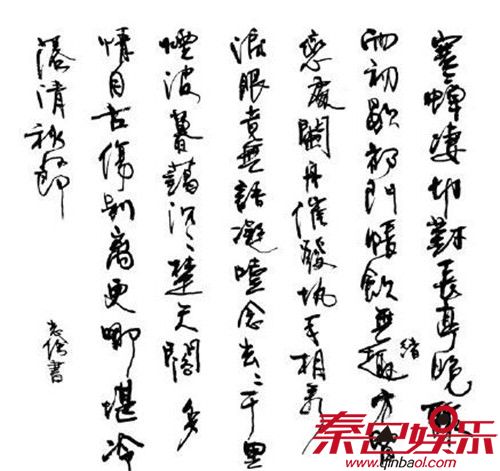 寒蟬淒切對長亭晚驟
雨初歇都門帳飲無趣方留
緒
戀處闌舟催發執手相看
淚眼竟無語凝噎念去〻千里
煙波暮靄沉〻楚天闊多
情自古傷別離更那堪冷
落清秋節
書
秦巴娱乐
www.qinbaol.com